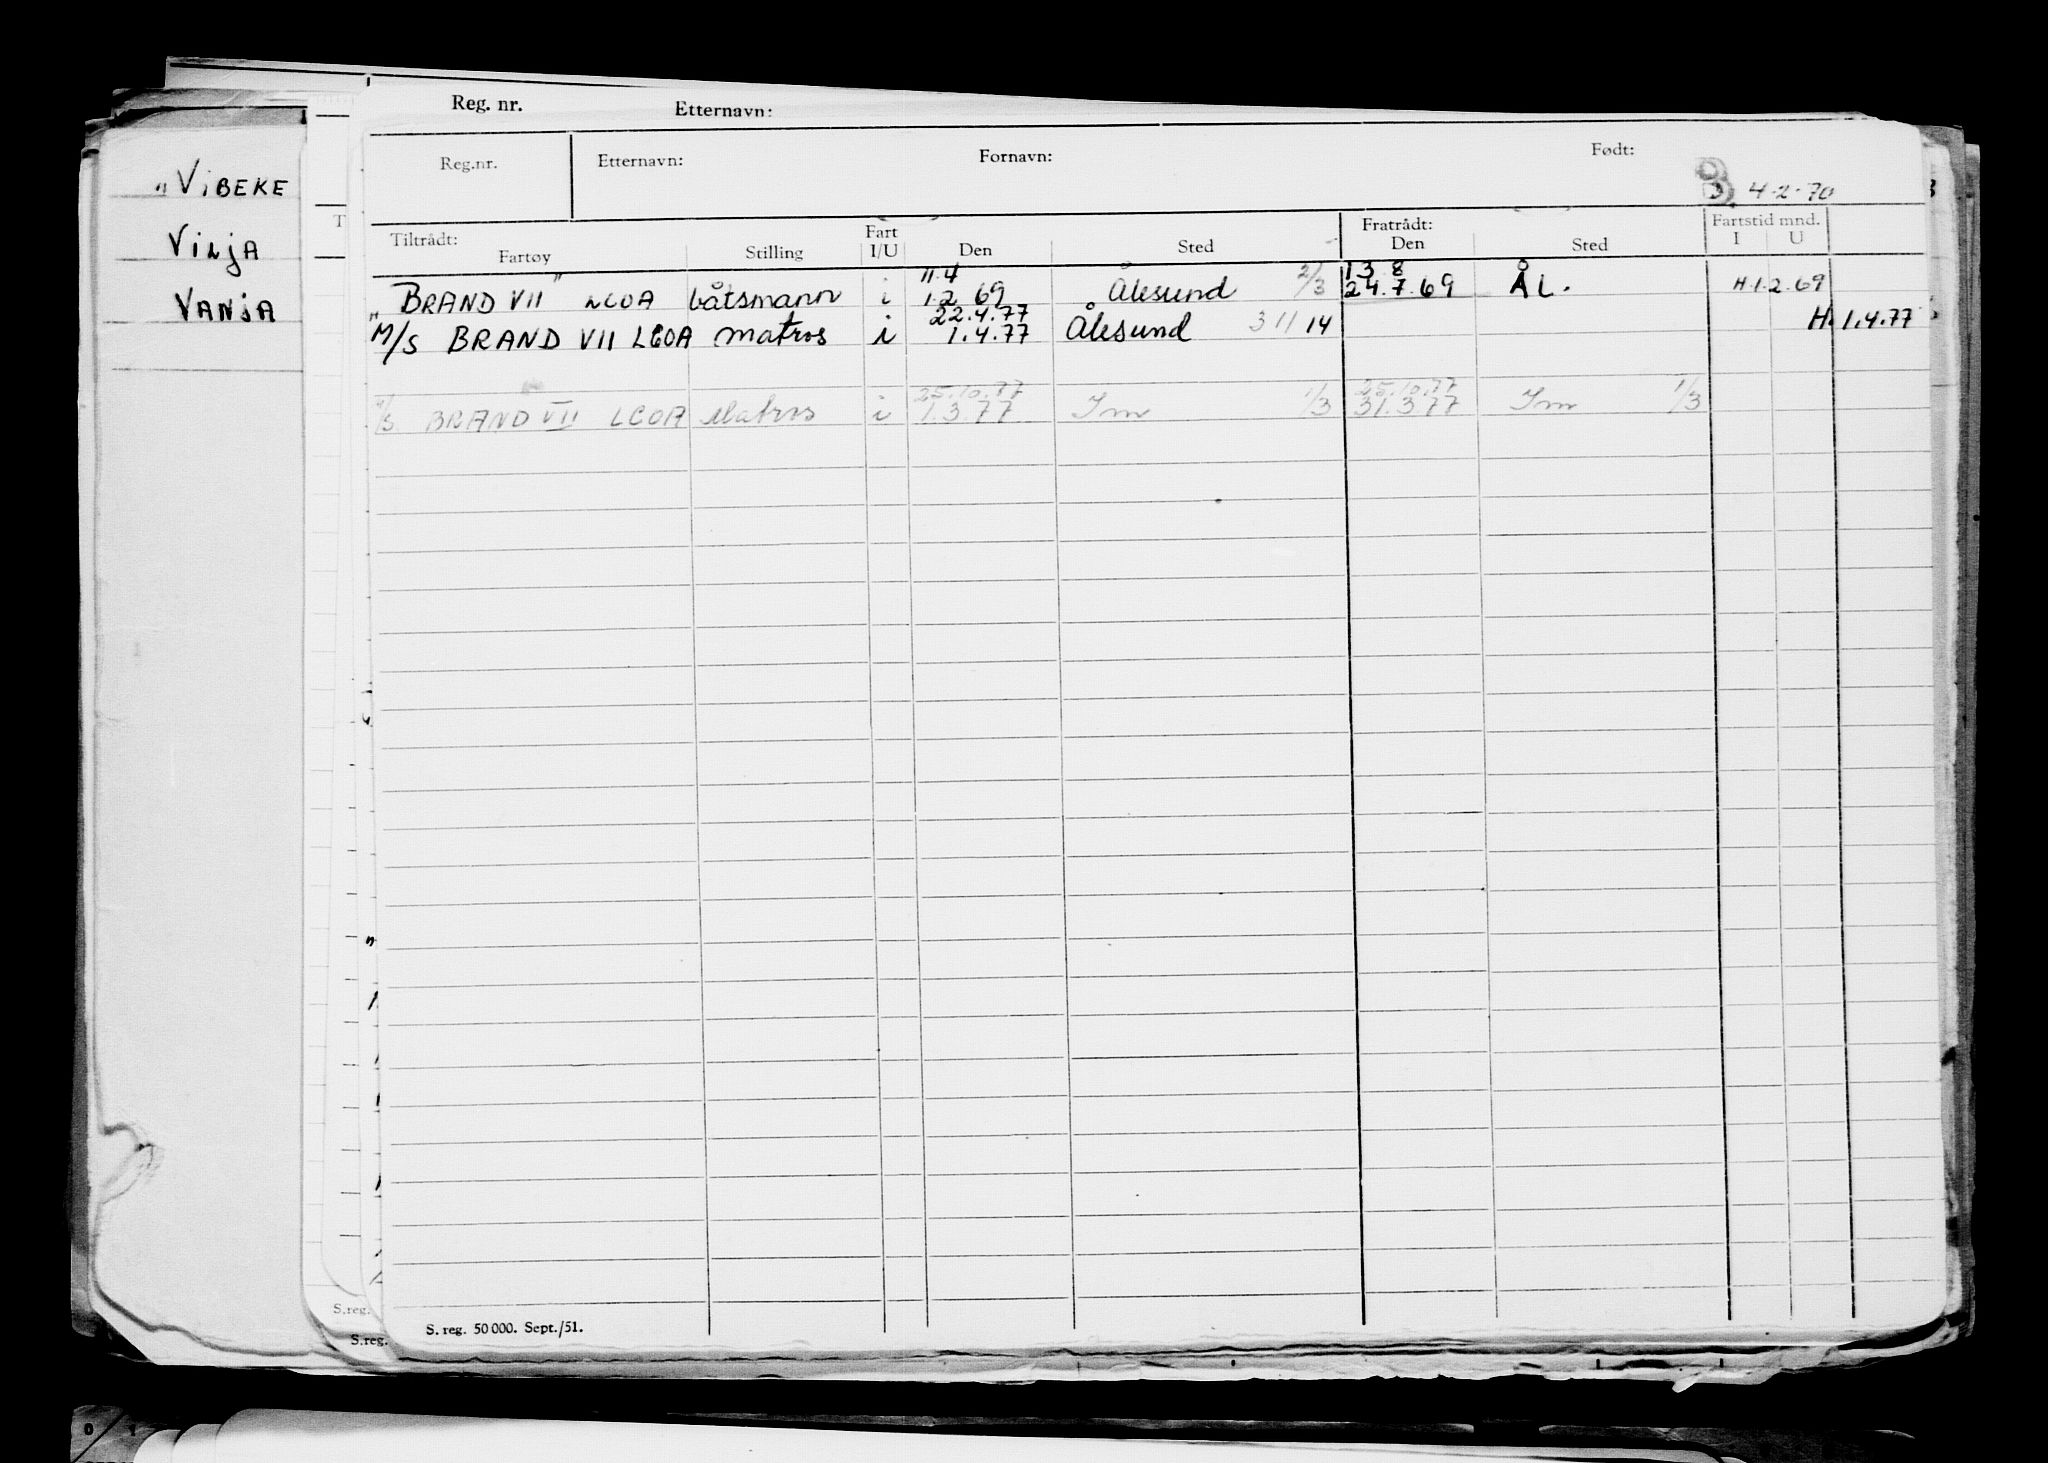 Reg. nr. Etternavn:
Reg.nr. Etternavn: Fornavn: Født:
4-2-70
Tiltrådt: Fart Fratrådt: Fartstid mnd.
Fartøy Stilling I/U Den Sted Den Sted I U
11.4 13 8
"BRAND VII" LCOA båtsmann i 1.2 69 Ålesund 2/3 24.7.69 ÅL. H.1.2.69
22.4.77
M/S BRAND VII LCOA matros i 1.4.77 Ålesund 3 11 14 H. 1.4.77
25.10.77 25.10.77
M/S BRAND VII LCOA Matros i 1.3.77 Im 1/3 31.3.77 Im 1/3
S. reg. 50 000. Sept./51.
"VIBEKE
VILJA
VANJA
T
S.reg.
S.reg.
0 1